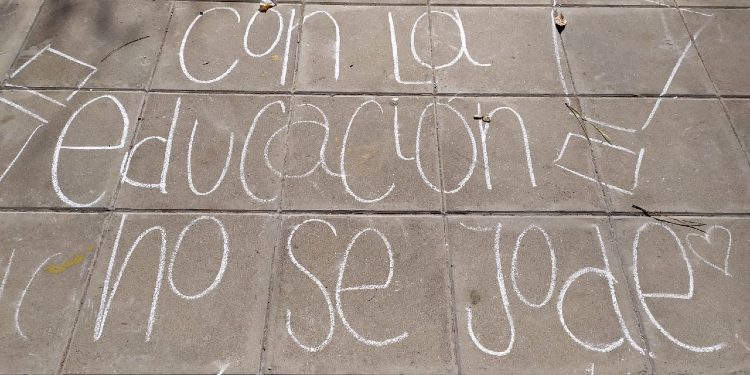 con la
educación
no se jode